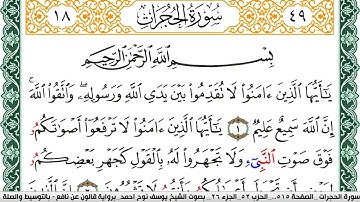 ١٨ سُورَةُ الحُجُرَاتِ ٤٩
بِسْمِ اللَّهِ الرَّحْمَٰنِ الرَّحِيمِ
يَٰٓأَيُّهَا ٱلَّذِينَ ءَامَنُواْ لَا تُقَدِّمُواْ بَيْنَ يَدَيِ ٱللَّهِ وَرَسُولِهِۦ وَٱتَّقُواْ ٱللَّهَ
إِنَّ ٱللَّهَ سَمِيعٌ عَلِيمٌ ١ يَٰٓأَيُّهَا ٱلَّذِينَ ءَامَنُواْ لَا تَرْفَعُوٓاْ أَصْوَٰتَكُمُۥ
فَوْقَ صَوْتِ ٱلنَّبِيٓءِ وَلَا تَجْهَرُواْ لَهُۥ بِٱلْقَوْلِ كَجَهْرِ بَعْضِكُمُۥ
سورة الحجرات .. الصفحة ٥١٥ .. الحزب ٥٢ .. الجزء ٢٦ .. بصوت الشيخ يوسف نوح احمد برواية قالون عن نافع - بالتوسيط والصلة